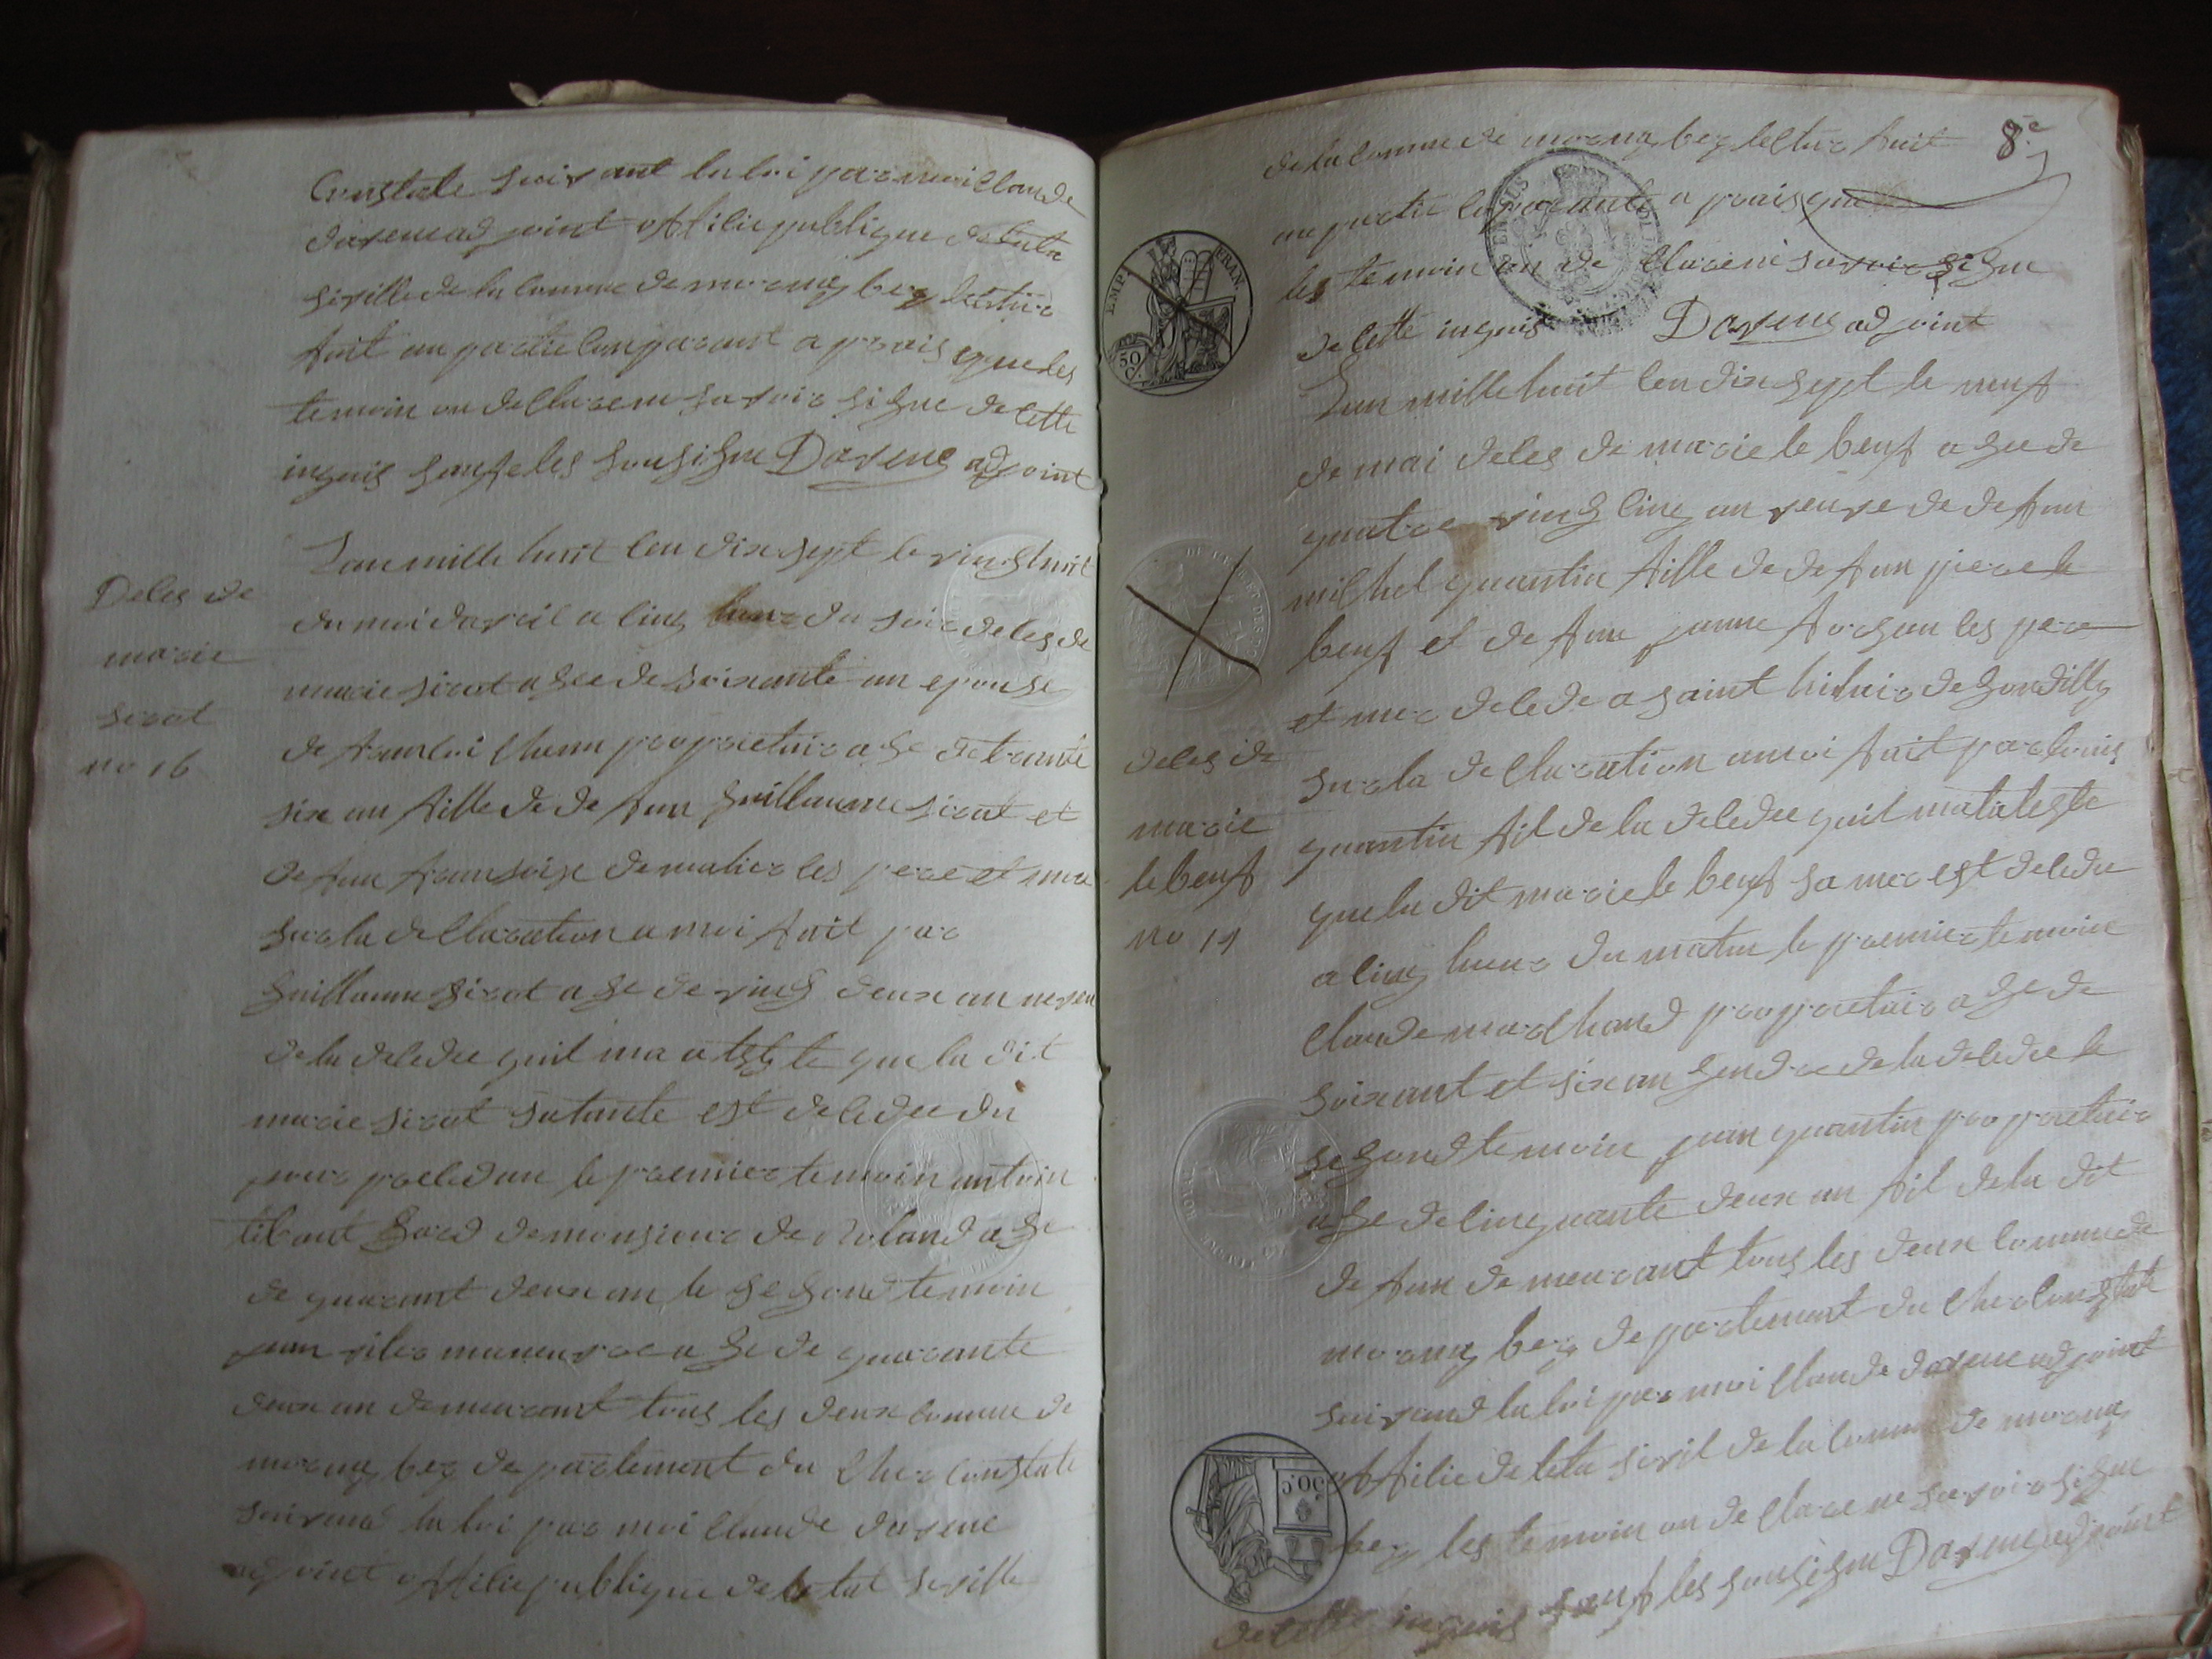 Constate suivant la loi par moi Claude
Davene adjoint offisie publique de leta
siville de la comune de mornay bery lectura
fait au partie comparant a prais que les
temoin on declare ne savoir signe de cette
inquis sauf les sousigne Davene adjoint
Deles de
marie
sirot
no 16
Lan mille huit cen dix sept le vingt huit
du moi davril a cinq heur du soir deles de
marie sirot agee de soixante un epouse
de franloi Chenu proprietaire age de trante
six an fille de defun guillaume sirot et
de fun fransoise demalier les pere et mer
sur la declaration a moi fait par
guillaume sirot age de ving deux an neveu
de la deledee quil ma ateste que la dit
marie sirot sa tante est deledee du
jour preledan le premier temoin antoin
tibaut gard de monsieur de roland age
de quarant deux an le segond temoin
jean viler maneuvre age de quarante
deux an demeurant tous les deux comune de
mornay bery departement du Cher constate
suivand la loi par moi Claude davene
adjoint offisie publique de letat siville
8e
de la comune de mornay bery lectura fait
au partie comparante a prais que
les temoin on declare ne savoir signe
de cette inquis Davene adjoint
EMP. FRAN.
50 C.
deles de
marie
le beuf
no 17
Lan mille huit cen dix sept le neuf
de mai deles de marie le beuf agee de
quatre ving cinq an veuve de defun
milhel quantin fille de defun piere le
beuf et de fun janne forgan les pere
et mer deledee a saint hilaire de gondilly
sur la declaration a moi fait par louis
quantin fil de la deledee quil ma ateste
que la dit marie le beuf sa mer est deledee
a cinq heur du matin le premier temoin
Claude marchand proprietaire age de
soixant et six an gendre de la deledee le
segond temoin jean quantin proprietaire
age de cinquante deux an fil de la dit
defun demeurant tous les deux comune de
mornay bery departement du Cher constate
suivand la loi par moi Claude davene adjoint
offisie de leta sivil de la comune de mornay
bery les temoin on declare ne savoir signe
de cette inquis sauf les sousigne Davene adjoint
50 C.